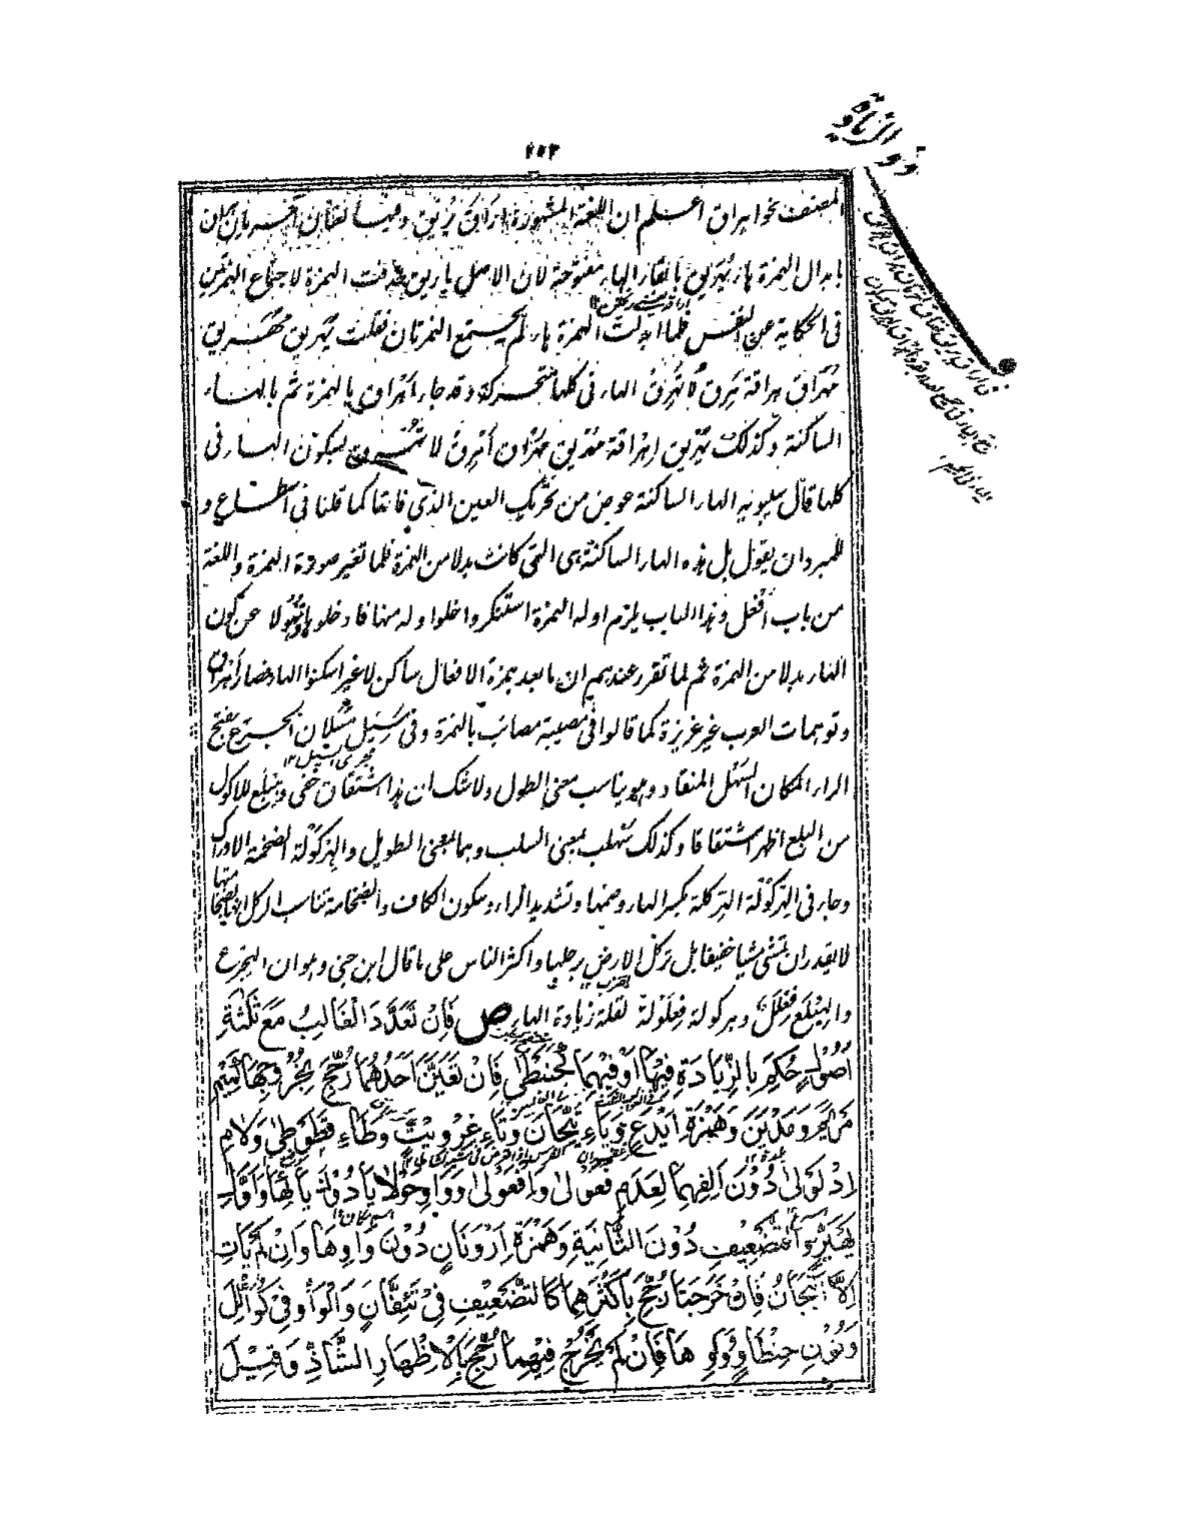 ذو الزيادة
٢٥٣
المصنف نحو اهراق اعلم ان اللغة المشهورة اراق يريق وفيها لغتان اخريان هراق
بابدال الهمزة هاء يهريق بابقاء الهاء مفتوحة لان الاصل يأريق حذفت الهمزة لاجتماع الهمزتين
فى الحكاية عن النفس فلما ابدلت الهمزة هاء لم يجتمع الهمزتان فقلت يهريق مهريق
مهراق هراقة هرق لا تهرق الهاء فى كلها متحركة وقد جاء اهراق بالهمزة ثم بالهاء
الساكنة وكذلك يهريق اهراقة مهريق مهراق اهرق لا تهرق بسكون الهاء فى
كلها قال سيبويه الهاء الساكنة عوض من تحريك العين الذى فاتها كما قلنا فى اسطاع و
للمبرد ان يقول بل هذه الهاء الساكنة هى التى كانت بدلا من الهمزة فلما تغير صورة الهمزة واللغة
من باب افعل وهذا الباب يلزم اوله الهمزة استنكروا خلو اوله منها فادخلوها ذهولا عن كون
الهاء بدلا من الهمزة ثم لما تقرر عندهم ان ما بعد همزة الافعال ساكن لا غير اسكنوا الهاء فصار اهراق
وتوهمات العرب غير عزيزة كما قالوا فى مصيبة مصائب بالهمزة وفى مسيل مسلان الجرع بفتح
الراء المكان السهل المنقاد وهو يناسب معنى الطول ولا شك ان هذا اشتقاق خفى وهبلع للاكول
من البلع اظهر اشتقاقا وكذلك سهلب بمعنى السلب وهما بمعنى الطويل والهركولة الضخمة الاوراك
وجاء فى الهركولة الهركلة بكسر الهاء وضمها وتشديد الراء وسكون الكاف والضخامة تناسب الركل لانها لضخامتها
لا يقدر ان تمشى مشيا خفيفا بل تركل الارض برجلها واكثر الناس على ما قال ابن جنى وهو ان الهجرع
والهبلع فعلل وهركولة فعلولة لقلة زيادة الهاء ص فَاِنْ تَعَدَّدَ الْغَالِبُ مَعَ ثَلٰثَةِ
اُصُوْلٍ حُكِمَ بِالزِّيَادَةِ فِيْهَا اَوْ فِيْهِمَا كَحَبَنْطًى فَاِنْ تَعَيَّنَ اَحَدُهُمَا رُجِّحَ بِخُرُوْجِهَا كَمِيْمِ
مَرْيَمَ وَمَدْيَنَ وَهَمْزَةِ اَيْدَعٍ وَيَاءِ تَيَّحَانَ وَتَاءِ عِزْوِيْتٍ وَطَاءِ قَطَوْطًى وَلَامِ
اِدْلَوْلٰى دُوْنَ اَلِفِهِمَا لِعَدَمِ فَعَوْلٰى وَافْعَوْلٰى وَوَاوِ حَوْلَايَا دُوْنَ يَائِهَا وَاَوَّلِ
يَهْيَرٍّ وَالتَّضْعِيْفِ دُوْنَ الثَّانِيَةِ وَهَمْزَةِ اَرْوَنَانٍ دُوْنَ وَاوِهَا وَاِنْ لَمْ يَاْتِ
اِلَّا اَنْبَجَانُ فَاِنْ خَرَجَتَا رُجِّحَ بِاَكْثَرِهِمَا كَالتَّضْعِيْفِ فِىْ تَئِفَّانٍ وَالْوَاوِ فِىْ كَوَأْلَلٍ
وَنُوْنِ حِنْطَأْوٍ وَوَاوِهَا فَاِنْ لَمْ يَخْرُجْ فِيْهِمَا رُجِّحَ بِالْاِظْهَارِ الشَّاذِّ وَقِيْلَ